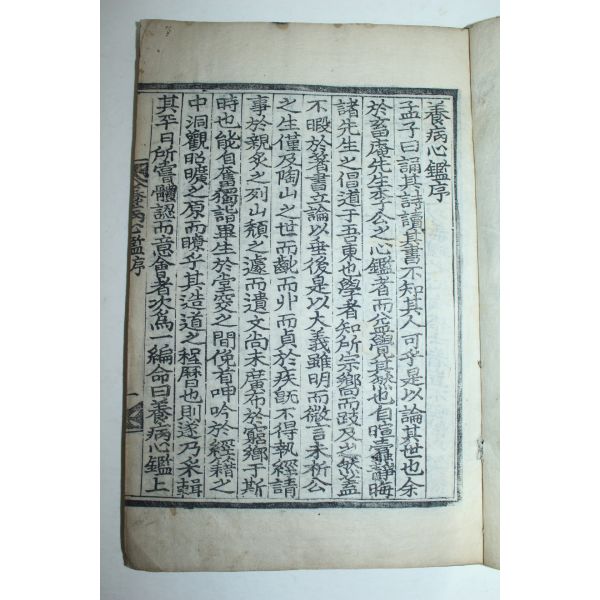 養病心鑑序
孟子曰誦其詩讀其書不知其人可乎是以論其世也余
於畜庵先生李公之心鑑者而益覺其然也自暄蠹靜晦
諸先生之倡道于吾東也學者知所宗鄉而跂及之然蓋
不暇於著書立論以垂後是以大義雖明而微言未析公
之生僅及陶山之世而齔而丱而貞於疾旣不得執經請
事於親炙之列山頹之遽而遺文尚未廣布於窮鄉于斯
時也能自奮獨詣畢生於堂奧之間俛有呻吟於經籍之
中洞觀昭曠之原而瞭乎其造道之程曆也則遂乃采輯
其平日所嘗體認而意會者次為一編命曰養病心鑑上
養病心鑑序
一